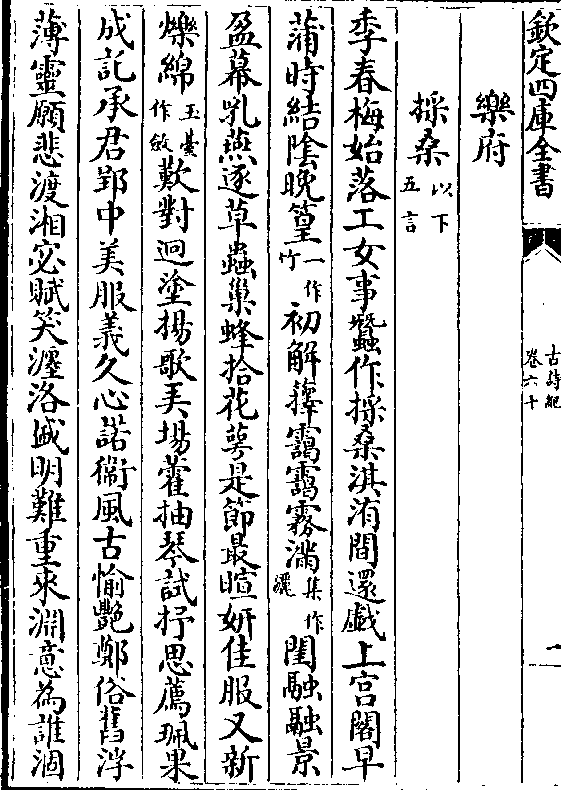 欽定四庫全書
古詩紀
卷六十
一
樂府
採桑以下五言
季春梅始落工女事蠶作採桑淇洧間還戱上宫閣早
蒲時結陰晚篁一作竹初解籜靄靄霧滿集作灑閨融融景
盈幕乳燕逐草蟲巢蜂拾花萼是節最暄妍佳服又新
爍綿玉臺作斂歎對迥塗揚歌弄場藿抽琴試抒思薦珮果
成託承君郢中美服義久心諾衞風古愉艷鄭俗舊浮
薄靈願悲渡湘宓賦笑瀍洛盛明難重來淵意為誰涸